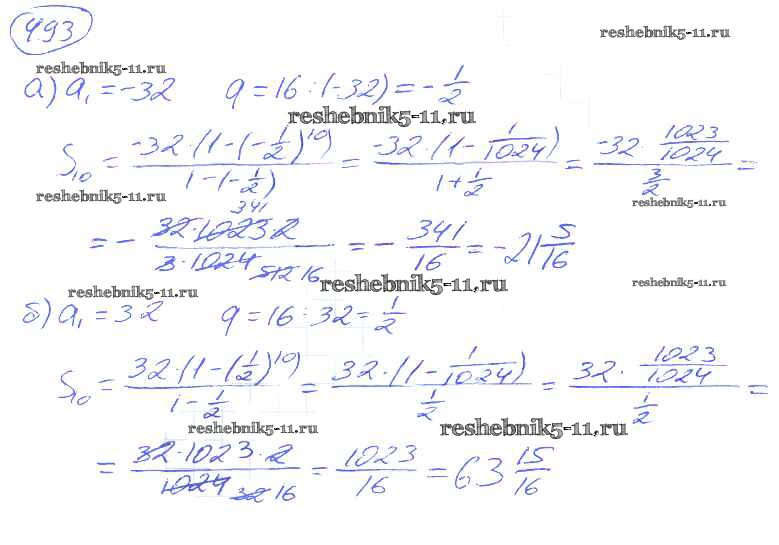 493
reshebnik5-11.ru
reshebnik5-11.ru
а) a₁ = -32   q = 16 : (-32) = -1/2
reshebnik5-11.ru
S₁₀ = -32·(1-(-1/2)¹⁰) / 1-(-1/2) = -32·(1-1/1024) / 1+1/2 = -32·1023/1024 / 3/2 =
reshebnik5-11.ru
reshebnik5-11.ru
341
= - 32·1023·2 / 3·1024 512 16 = - 341/16 = -21 5/16
reshebnik5-11.ru
reshebnik5-11.ru
reshebnik5-11.ru
б) a₁ = 32   q = 16 : 32 = 1/2
S₁₀ = 32·(1-(1/2)¹⁰) / 1-1/2 = 32·(1-1/1024) / 1/2 = 32·1023/1024 / 1/2 =
reshebnik5-11.ru
reshebnik5-11.ru
= 32·1023·2 / 1024 32 16 = 1023/16 = 63 15/16